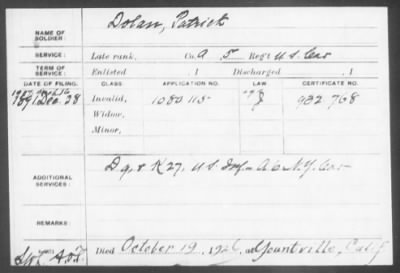 NAME OF SOLDIER: Dolan, Patrick
SERVICE: Late rank, Co. A 5 Reg't U.S. Cav
TERM OF SERVICE: Enlisted , 1 Discharged , 1
DATE OF FILING. CLASS. APPLICATION NO. LAW. CERTIFICATE NO.
1891 Dec 28 Invalid, 1080 115 982.768
Widow,
Minor,
ADDITIONAL SERVICES: D 9, & K 27, U.S. Inf - A 6 N.Y. Cav
REMARKS:
Died October 19, 1926, at Yountville, Calif